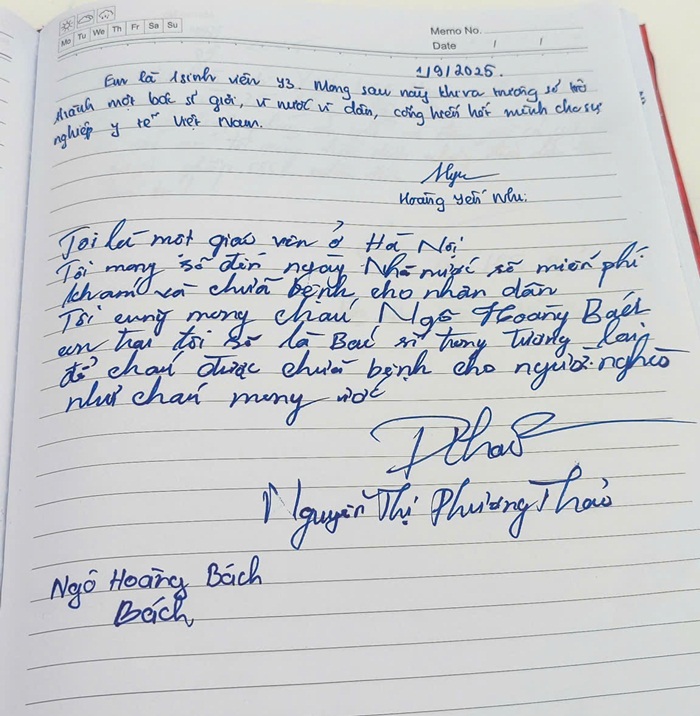 Mo Tu We Th Fr Sa Su
Memo No.
Date / /
1/9/2025.
Em là 1 sinh viên y3. Mong sau này khi ra trường sẽ trở
thành một bác sĩ giỏi, vì nước vì dân, cống hiến hết mình cho sự
nghiệp y tế Việt Nam.
Hoàng Yến Như.
Tôi là một giáo viên ở Hà Nội
Tôi mong sẽ đến ngày Nhà nước sẽ miễn phí
khám và chữa bệnh cho nhân dân
Tôi cũng mong cháu Ngô Hoàng Bách
con trai tôi sẽ là Bác sĩ trong tương lai
để cháu được chữa bệnh cho người nghèo
như cháu mong ước
PThao
Nguyễn Thị Phương Thảo
Ngô Hoàng Bách
Bách